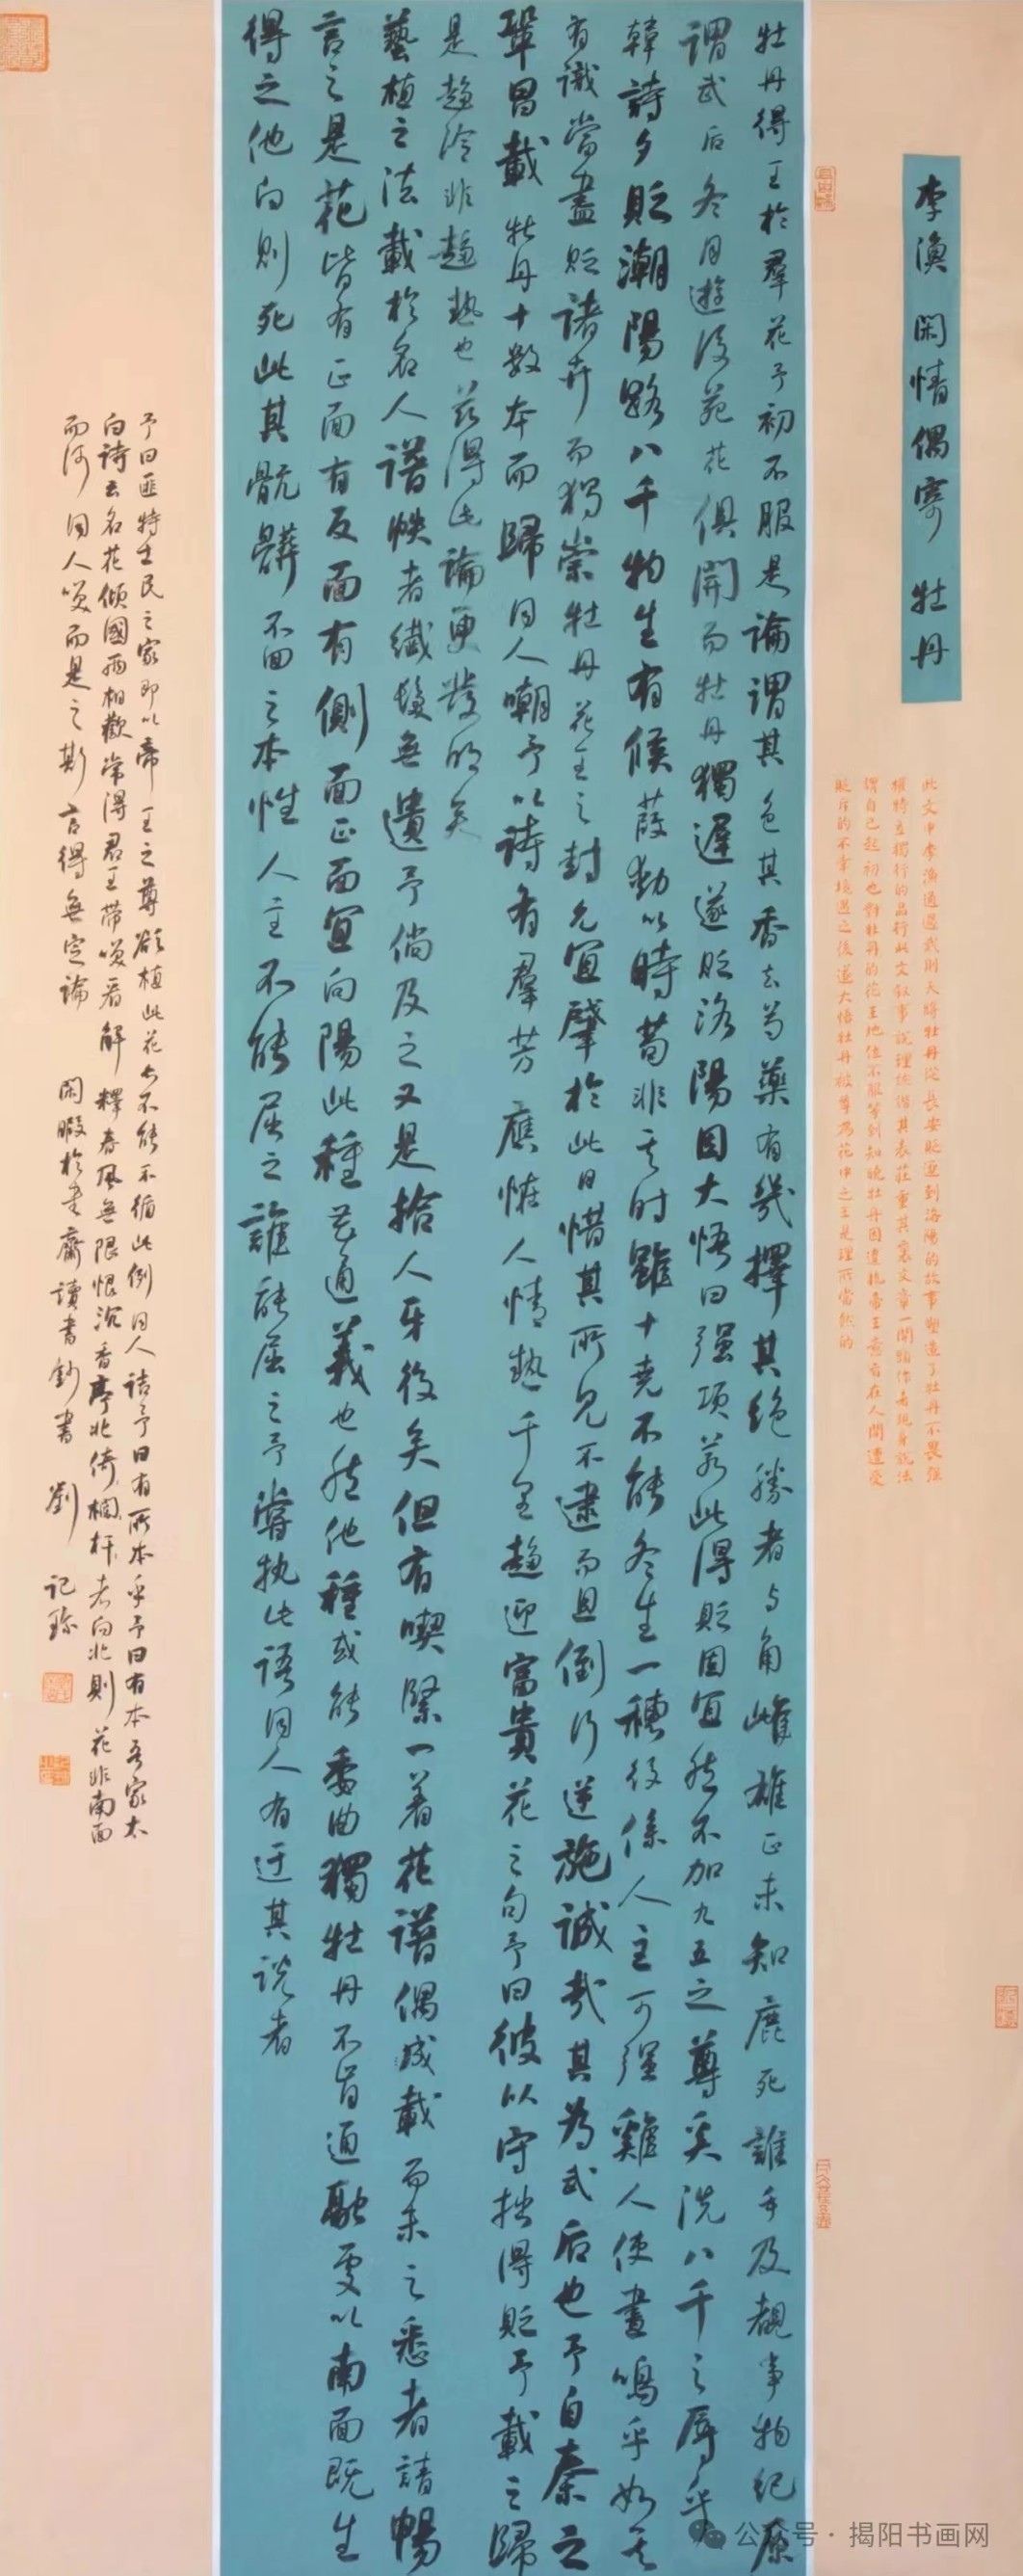 李漁 閑情偶寄 牡丹
此文中李漁通過武則天將牡丹從長安貶逐到洛陽的故事塑造了牡丹不畏強
權特立獨行的品行此文叙事說理詼諧其表莊重其裏文章一開頭作者現身說法
謂自己起初也對牡丹的花王地位不服等到知曉牡丹因違抗帝王意旨在人間遭受
貶斥的不幸境遇之後遂大悟牡丹被尊為花中之王是理所當然的
牡丹得王於羣花予初不服是論謂其色其香去芍藥有幾擇其絕勝者与角雌雄正未知鹿死誰手及覩事物紀原
謂武后冬月遊後苑花俱開而牡丹獨遲遂貶洛陽因大悟曰强項若此得貶固宜然不加九五之尊奚洗八千之辱乎
韓詩夕貶潮陽路八千物生有候葭動以時苟非其时雖十堯不能冬生一穗後係人主可强雞人使晝鳴乎如其
有識當盡貶諸卉而獨崇牡丹花王之封允宜肇於此日惜其所見不逮而且倒行逆施誠哉其為武后也予自秦之
鞏昌載牡丹十數本而歸同人嘲予以詩有羣芳應怪人情熱千里趨迎富貴花之句予曰彼以守拙得貶予載之歸
是趨冷非趨熱也茲得此論更發明矣
藝植之法載於名人譜帙者纖髮無遺予倘及之又是拾人牙後矣但有喫緊一着花譜偶或載而未之悉者請暢
言之是花皆有正面有反面有側面正面宜向陽此種花通義也然他種或能委曲獨牡丹不肯通融處以南面既生
得之他向則死此其骯髒不回之本性人主不能屈之誰能屈之予嘗執此語同人有迂其說者
予曰匪特士民之家即以帝王之尊欲植此花亦不能不循此例同人詰予曰有所本乎予曰有本吾家太
白詩云名花傾國兩相歡常得君王带笑看解釋春風無限恨沉香亭北倚欄杆者向北則花非南面
而何同人笑而是之斯言得無定論 閑暇於書齋讀書鈔書 劉記珍
公众号·揭阳书画网